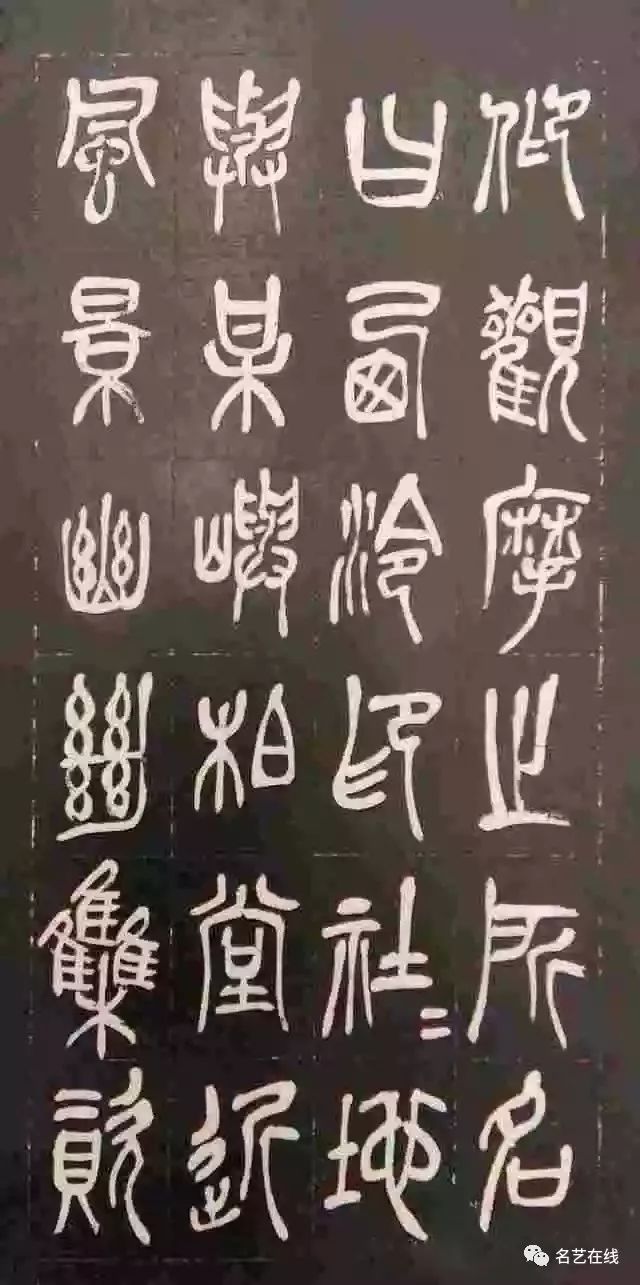 仰觀摩之所名
曰西泠印社=地
與某嶼柏堂近
風景幽絕雧資
名艺在线